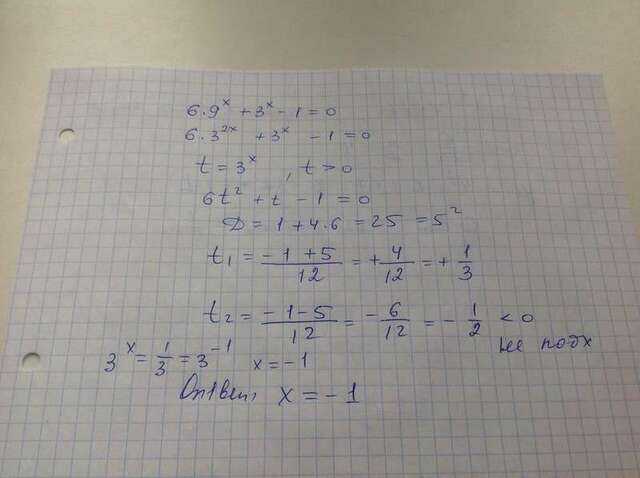 6·9^x + 3^x - 1 = 0
6·3^{2x} + 3^x - 1 = 0
t = 3^x , t > 0
6t^2 + t - 1 = 0
D = 1 + 4·6 = 25 = 5^2
t_1 = \frac{-1+5}{12} = +\frac{4}{12} = +\frac{1}{3}
t_2 = \frac{-1-5}{12} = -\frac{6}{12} = -\frac{1}{2} < 0
не подх
3^x = \frac{1}{3} = 3^{-1} x = -1
Ответ: x = -1